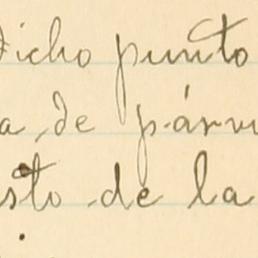 dicho punto
a de párvu
sto de la